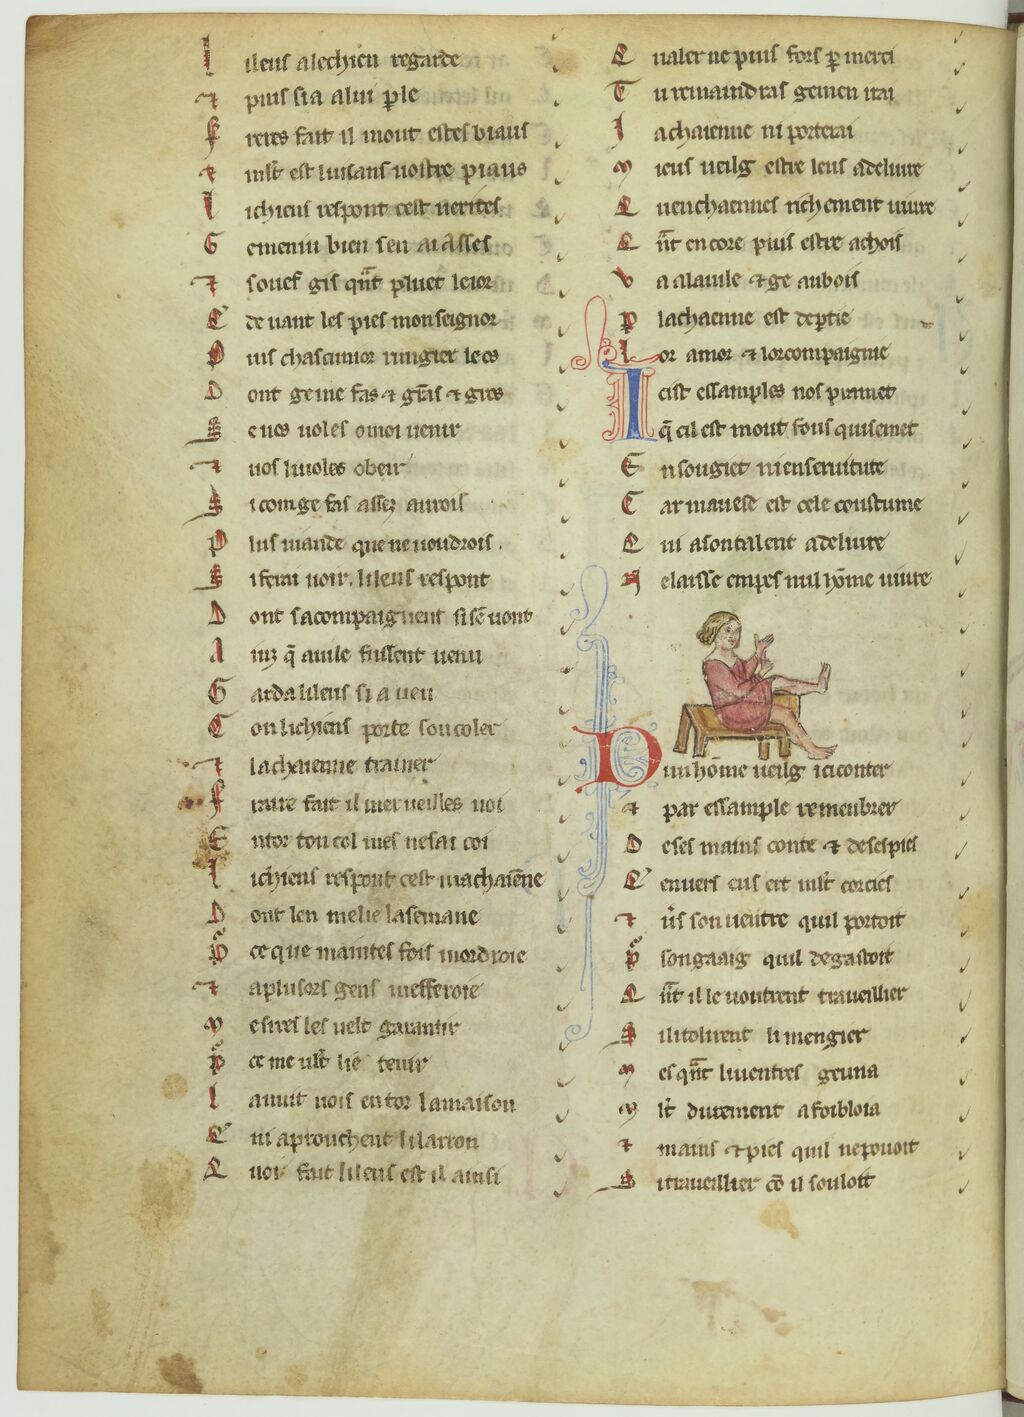 L i leus a le chien regarde
⁊ puis si a a lui ꝑle
F reres fait il mout estes biaus
⁊ mlt est luisans uostre piaus
L i chiens respont cest uerites
G e meniu bien sen ai asses
⁊ souef gis qnt pluet le ior
C de uant les pies mon seignor
P uis chascun ior rungier les os
D ont ge me fas ⁊ gras ⁊ gros
S e uos uoles o moi uenir
⁊ uos li uoles obeir
S i com ge fas assez aurois
P lus uiande que ne uoudrois .
S i ferai uoir . li leus respont
D ont sacompaignent si sen uont
A inz q̃ a uile fussent uenu
G arda li leus si a ueu
C on li chiens porte son coler
⁊ la chaienne trainer
F raire fait il merueilles uoi
E ntor ton col mes ne sai coi
L i chiens respont cest ma chaiẽne
D ont len me lie la semane
P ce que maintes fois mordroie
⁊ a plusors gens mefferoie
M e sires les uelt garantir
P ce me ult lie tenir
L a nuit uois entor la maison
C ni aprouchent li larron
Q uoi fait li leus est il ainsi
Q ualer ne puis fors ꝑ merci
T u remaindras ge men irai
J a chaienne ni porterai
M ieus ueilg estre leus a deliure
Q uen chaennes richement uiure
Q nt encore puis estre a chois
V a a la uile ⁊ ge au bois
P la chaenne est departie
L or amor ⁊ lor compaignie
I cist essamples nos prannet
q̃ cil est mout fous qui se met
E n sougiet nien seruitute
C ar mauese est cele coustume
Q ui a son talent a deliure
N e laisse empres nul hõme uiure
D un hõme ueilg ici conter
⁊ par essample remenbrer
D e ses mains conte ⁊ de ses pies
C enuers eus ert mlt corcies
⁊ uers son uentre quil portoit
P son gaaig quil degastoit
Q nt il le uontrent traueillier
S i li tolirent li mengier
M es qnt li uentres geuna
M lt durement afoibloia
⁊ mains ⁊ pies quil ne pouoit
S i traueillier cõ il souloit